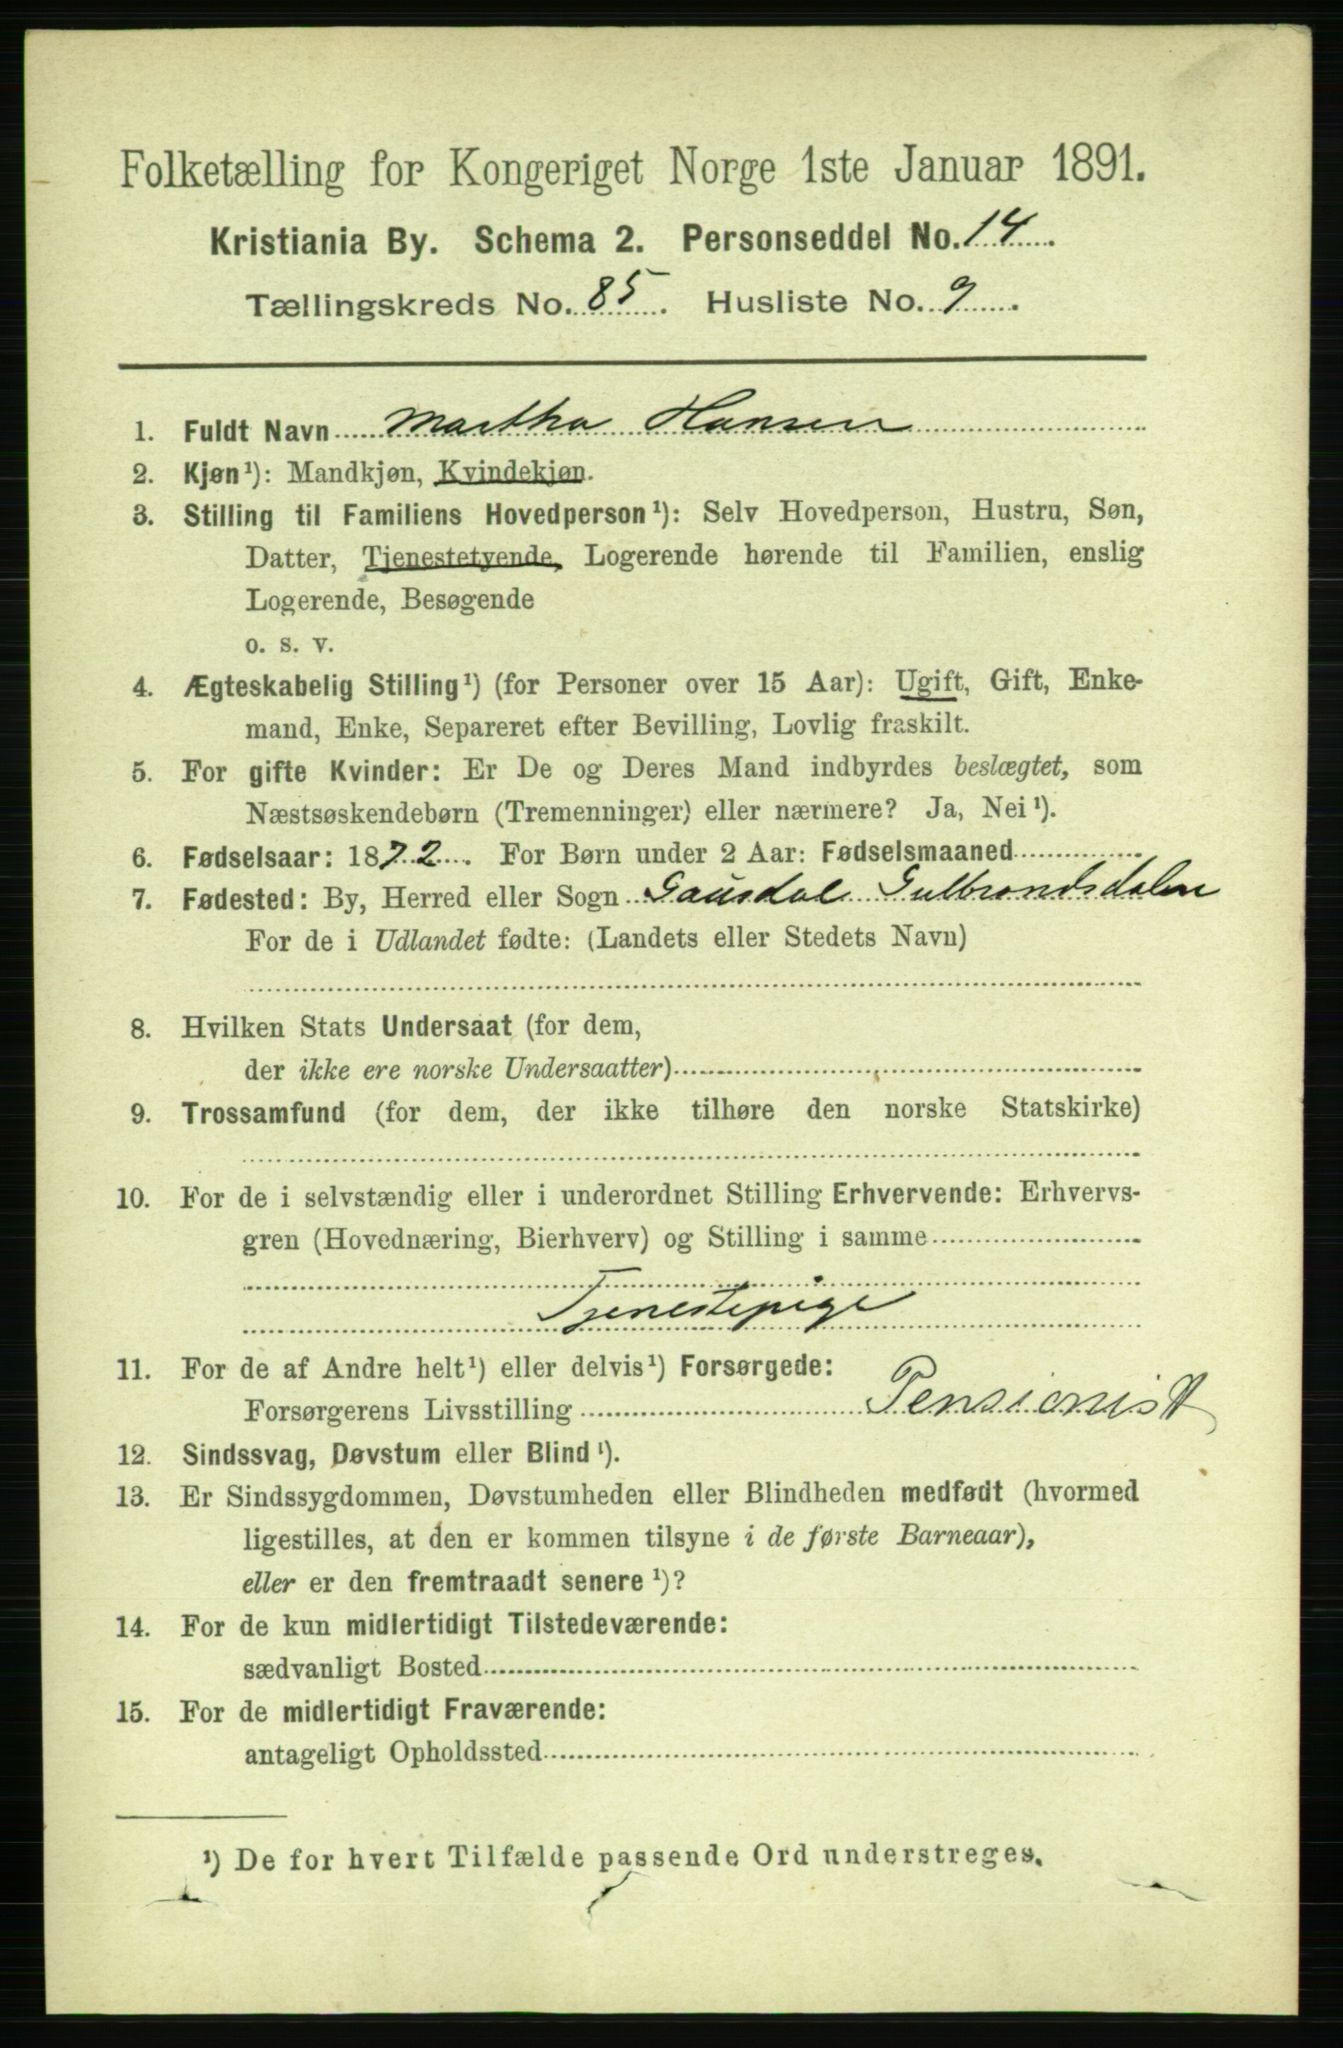 Folketælling for Kongeriget Norge 1ste Januar 1891.
Kristiania By. Schema 2. Personseddel No. 14.
Tællingskreds No. 85. Husliste No. 9.
1. Fuldt Navn Martha Hansen
2. Kjøn¹): Mandkjøn, Kvindekjøn.
3. Stilling til Familiens Hovedperson¹): Selv Hovedperson, Hustru, Søn,
Datter, Tjenestetyende, Logerende hørende til Familien, enslig
Logerende, Besøgende
o. s. v.
4. Ægteskabelig Stilling¹) (for Personer over 15 Aar): Ugift, Gift, Enke-
mand, Enke, Separeret efter Bevilling, Lovlig fraskilt.
5. For gifte Kvinder: Er De og Deres Mand indbyrdes beslægtet, som
Næstsøskendebørn (Tremenninger) eller nærmere? Ja, Nei¹).
6. Fødselsaar: 1872. For Børn under 2 Aar: Fødselsmaaned
7. Fødested: By, Herred eller Sogn Gausdal Gulbrandsdalen
For de i Udlandet fødte: (Landets eller Stedets Navn)
8. Hvilken Stats Undersaat (for dem,
der ikke ere norske Undersaatter)
9. Trossamfund (for dem, der ikke tilhøre den norske Statskirke)
10. For de i selvstændig eller i underordnet Stilling Erhvervende: Erhvervs-
gren (Hovednæring, Bierhverv) og Stilling i samme
Tjenestepige
11. For de af Andre helt¹) eller delvis¹) Forsørgede:
Forsørgerens Livsstilling Pensionist
12. Sindssvag, Døvstum eller Blind¹).
13. Er Sindssygdommen, Døvstumheden eller Blindheden medfødt (hvormed
ligestilles, at den er kommen tilsyne i de første Barneaar),
eller er den fremtraadt senere¹)?
14. For de kun midlertidigt Tilstedeværende:
sædvanligt Bosted
15. For de midlertidigt Fraværende:
antageligt Opholdssted
¹) De for hvert Tilfælde passende Ord understreges.